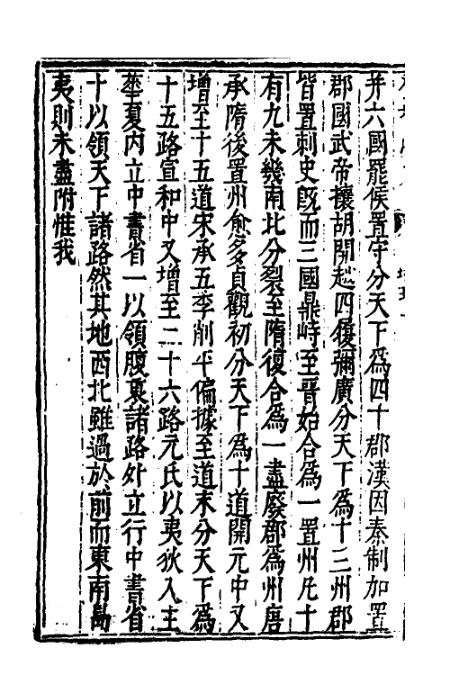 并六國罷侯置守分天下爲四十郡漢因秦制加置
郡國武帝攘胡開越四復彌廣分天下爲十三州郡
皆置刺史旣而三國鼎峙至晉始合爲一置州凡十
有九未幾南北分裂至隋復合爲一盡廢郡爲州唐
承隋後置州愈多貞觀初分天下爲十道開元中又
增至十五道宋承五季削平偏據至道末分天下爲
十五路宣和中又增至二十六路元氏以夷狄入主
華夏内立中書省一以領腹裏諸路外立行中書省
十以領天下諸路然其地西北雖過於前而東南島
夷則未盡附惟我